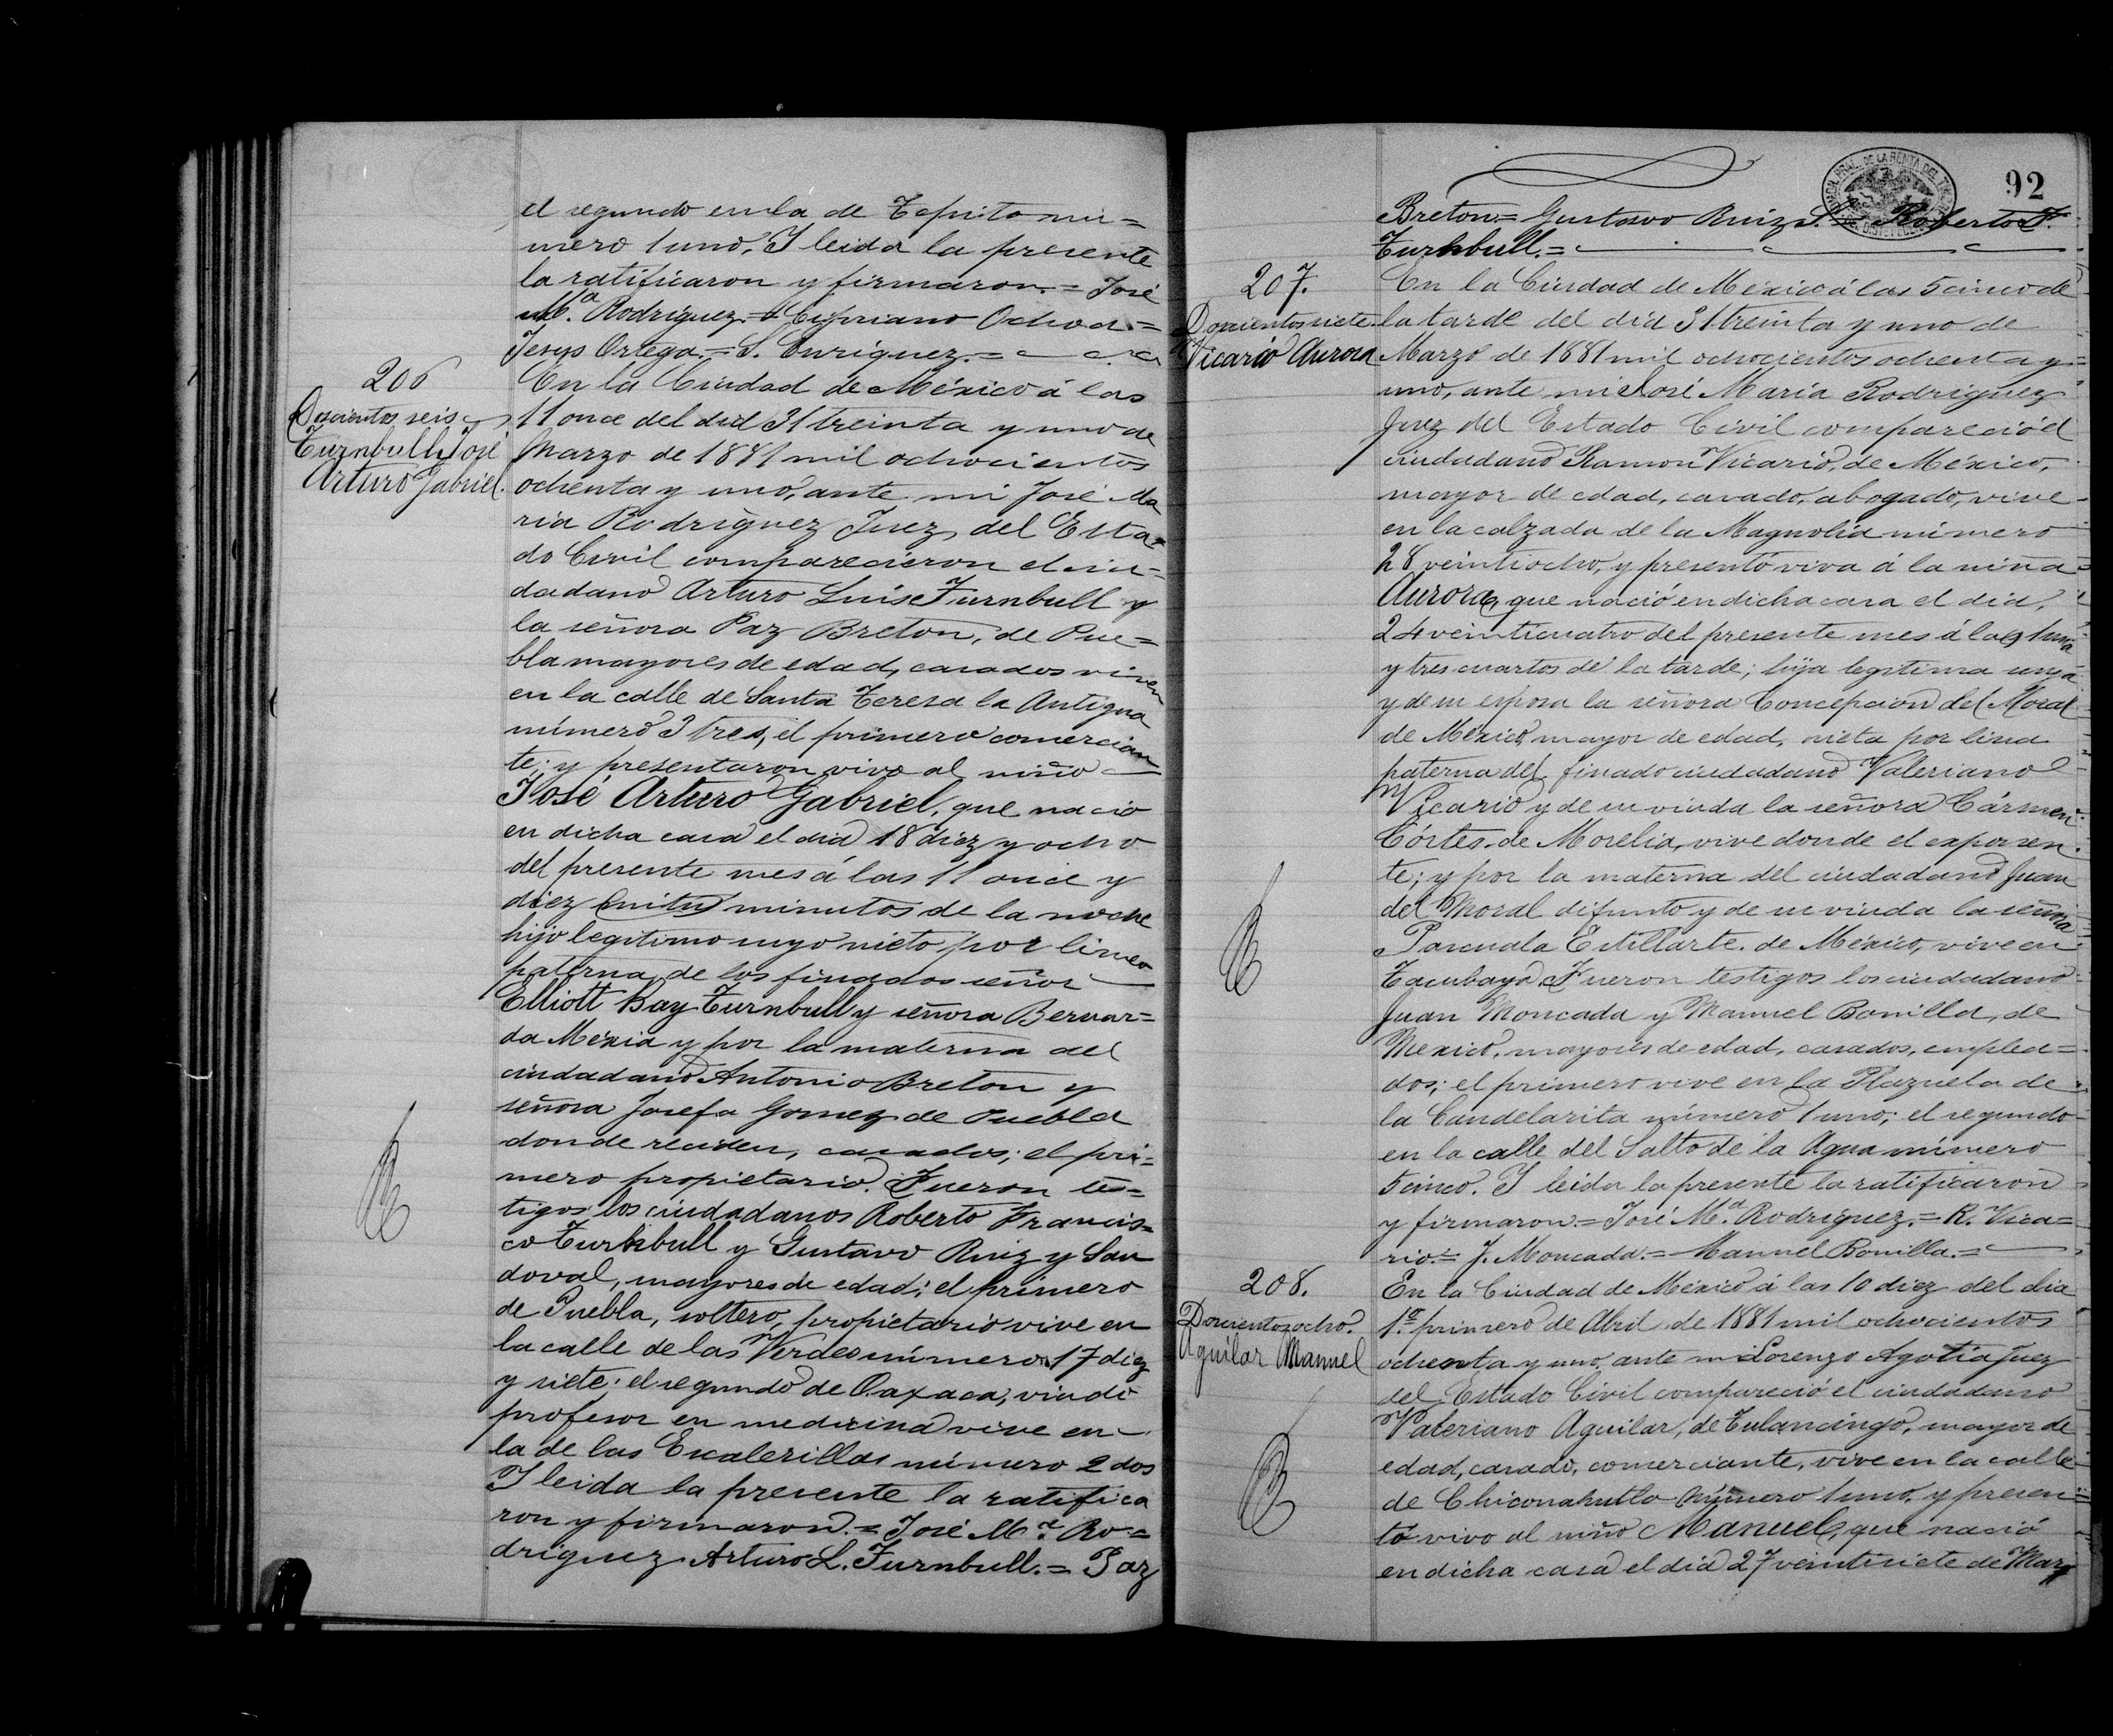 el segundo en la de Tepito nú=
mero 1 uno. I leida la presente
la ratificaron y firmaron.= José
Mª. Rodriguez.= Cipriano Ochoa.=
Jesus Ortega.= S. Enriquez.=
206
Doscientos seis
Turnbull José
Arturo Gabriel.
En la Ciudad de México á las
11 once del dia 31 treinta y uno de
Marzo de 1881 mil ochocientos
ochenta y uno, ante mi José Ma
ria Rodriguez Juez del Esta=
do Civil comparecieron el ciu=
dadano Arturo Luis Turnbull y
la señora Paz Breton, de Pue=
bla mayores de edad, casados viven
en la calle de Santa Teresa la Antigua
número 3 tres, el primero comercian
te; y presentaron vivo al niño
José Arturo Gabriel, que nació
en dicha casa el dia 18 diez y ocho
del presente mes á las 11 once y
diez minutos de la noche
hijo legitimo suyo nieto por linea
paterna de los finados señor
Elliott Bay Turnbull y señora Bernar=
da Méxia y por la materna del
ciudadano Antonio Breton y
señora Josefa Gomez de Puebla
donde reciden, casados; el pri=
mero propietario. Fueron tes=
tigos los ciudadanos Roberto Francis=
co Turnbull y Gustavo Ruiz y San
doval, mayores de edad; el primero
de Puebla, soltero, propietario vive en
la calle de las Verdes número 17 diez
y siete; el segundo de Oaxaca, viudo
profesor en medicina vive en
la de las Escalerillas número 2 dos
I leida la presente la ratifica
ron y firmaron.= José Mª. Ro=
driguez Arturo L. Turnbull.= Paz
92
Breton.= Gustavo Ruiz S.= Roberto F.
Turnbull.=
207.
Doscientos siete
Vicario Aurora
En la Ciudad de México á las 5 cinco de
la tarde del dia 31 treinta y uno de
Marzo de 1881 mil ochocientos ochenta y
uno, ante mi José Maria Rodriguez
Juez del Estado Civil compareció el
ciudadano Ramon Vicario, de México,
mayor de edad, casado, abogado, vive
en la calzada de la Magnolia número
28 veintiocho, y presentó viva á la niña
Aurora, que nació en dicha casa el dia
24 veinticuatro del presente mes á la 1 una
y tres cuartos de la tarde; hija legitima suya
y de su esposa la señora Concepcion del Moral
de México mayor de edad, nieta por linea
paterna del finado ciudadano Valeriano
Vicario y de su viuda la señora Cármen
Córtes, de Morelia, vive donde el exponen
te; y por la materna del ciudadano Juan
del Moral difunto y de su viuda la señora
Pascuala Estillarte, de México, vive en
Tacubaya. Fueron testigos los ciudadanos
Juan Moncada y Manuel Bonilla, de
México, mayores de edad, casados, emplea=
dos; el primero vive en la Plazuela de
la Candelarita número 1 uno; el segundo
en la calle del Salto de la Agua número
5 cinco. I leida la presente la ratificaron
y firmaron.= José Mª. Rodriguez.= R. Vica=
rio.= J. Moncada.= Manuel Bonilla.=
208.
Doscientos ocho.
Aguilar Manuel
En la Ciudad de México á las 10 diez del dia
1º. primero de Abril de 1881 mil ochocientos
ochenta y uno, ante mi Lorenzo Agotia Juez
del Estado Civil compareció el ciudadano
Valeriano Aguilar, de Tulancingo, mayor de
edad, casado, comerciante, vive en la calle
de Chiconahutla número 1 uno, y presen=
tó vivo al niño Manuel, que nació
en dicha casa el dia 27 veintisiete de Marz